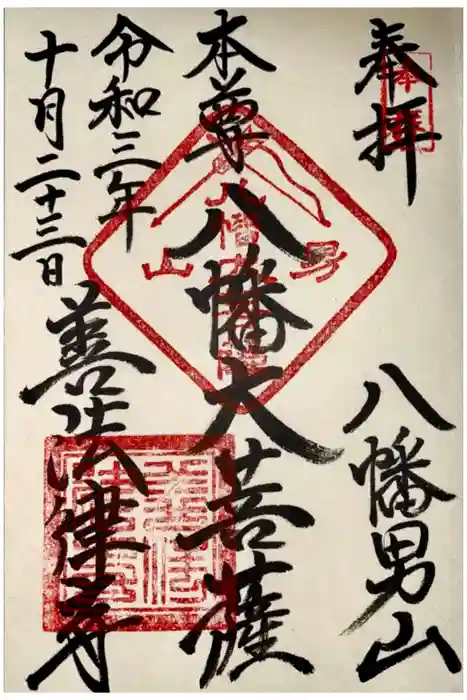 奉拝
八幡男山
本尊八幡大菩薩
令和三年
十月二十三日
善法律寺
奉拝
男山